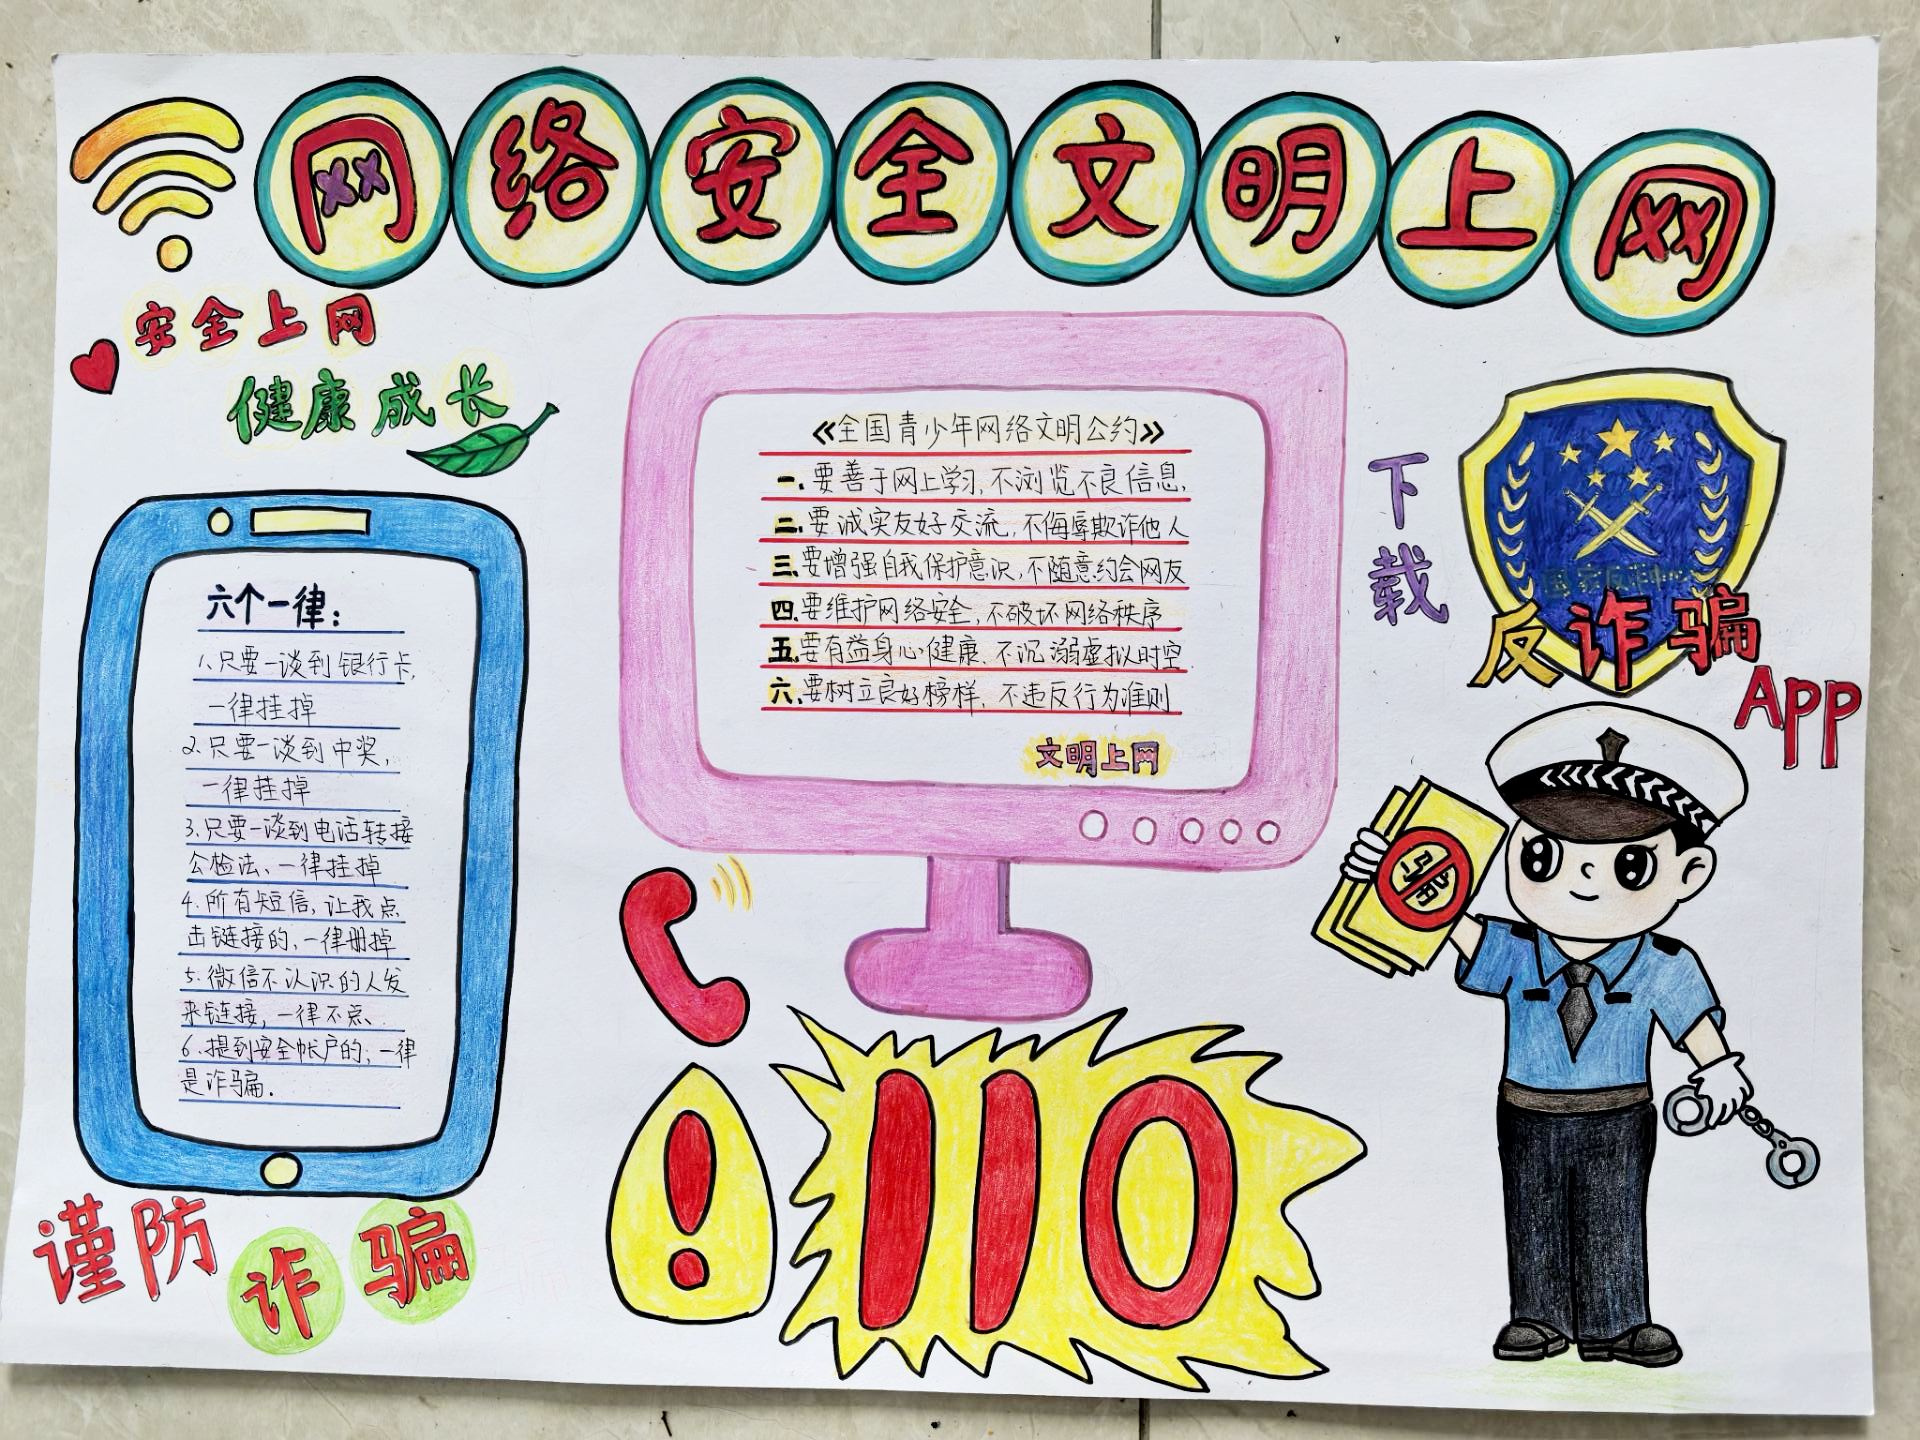 网络安全文明上网
安全上网
健康成长
六个一律：
1、只要一谈到银行卡，
一律挂掉
2、只要一谈到中奖，
一律挂掉
3、只要一谈到电话转接
公检法、一律挂掉
4、所有短信，让我点
击链接的，一律删掉
5、微信不认识的人发
来链接，一律不点、
6、提到安全帐户的，一律
是诈骗.
谨防
诈骗
《全国青少年网络文明公约》
一、要善于网上学习，不浏览不良信息、
二、要诚实友好交流，不侮辱欺诈他人
三、要增强自我保护意识，不随意约会网友
四、要维护网络安全，不破坏网络秩序
五、要有益身心健康、不沉溺虚拟时空
六、要树立良好榜样，不违反行为准则
文明上网
110
下载
国家反诈中心
反诈骗
APP